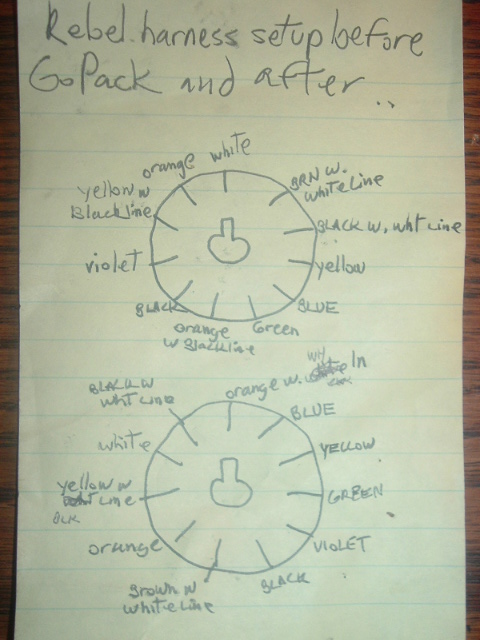 Rebel harness setup before
GoPack and after..
orange
white
BRN W.
white LINE
yellow w
Black line
BLACK W. wht LINE
violet
yellow
BLACK
BLUE
orange
W Black line
Green
BLACK W
wht LINE
orange w.
ln
BLUE
white
YELLOW
yellow w
LINE
BLK
GREEN
orange
VIOLET
Brown W
white LINE
BLACK